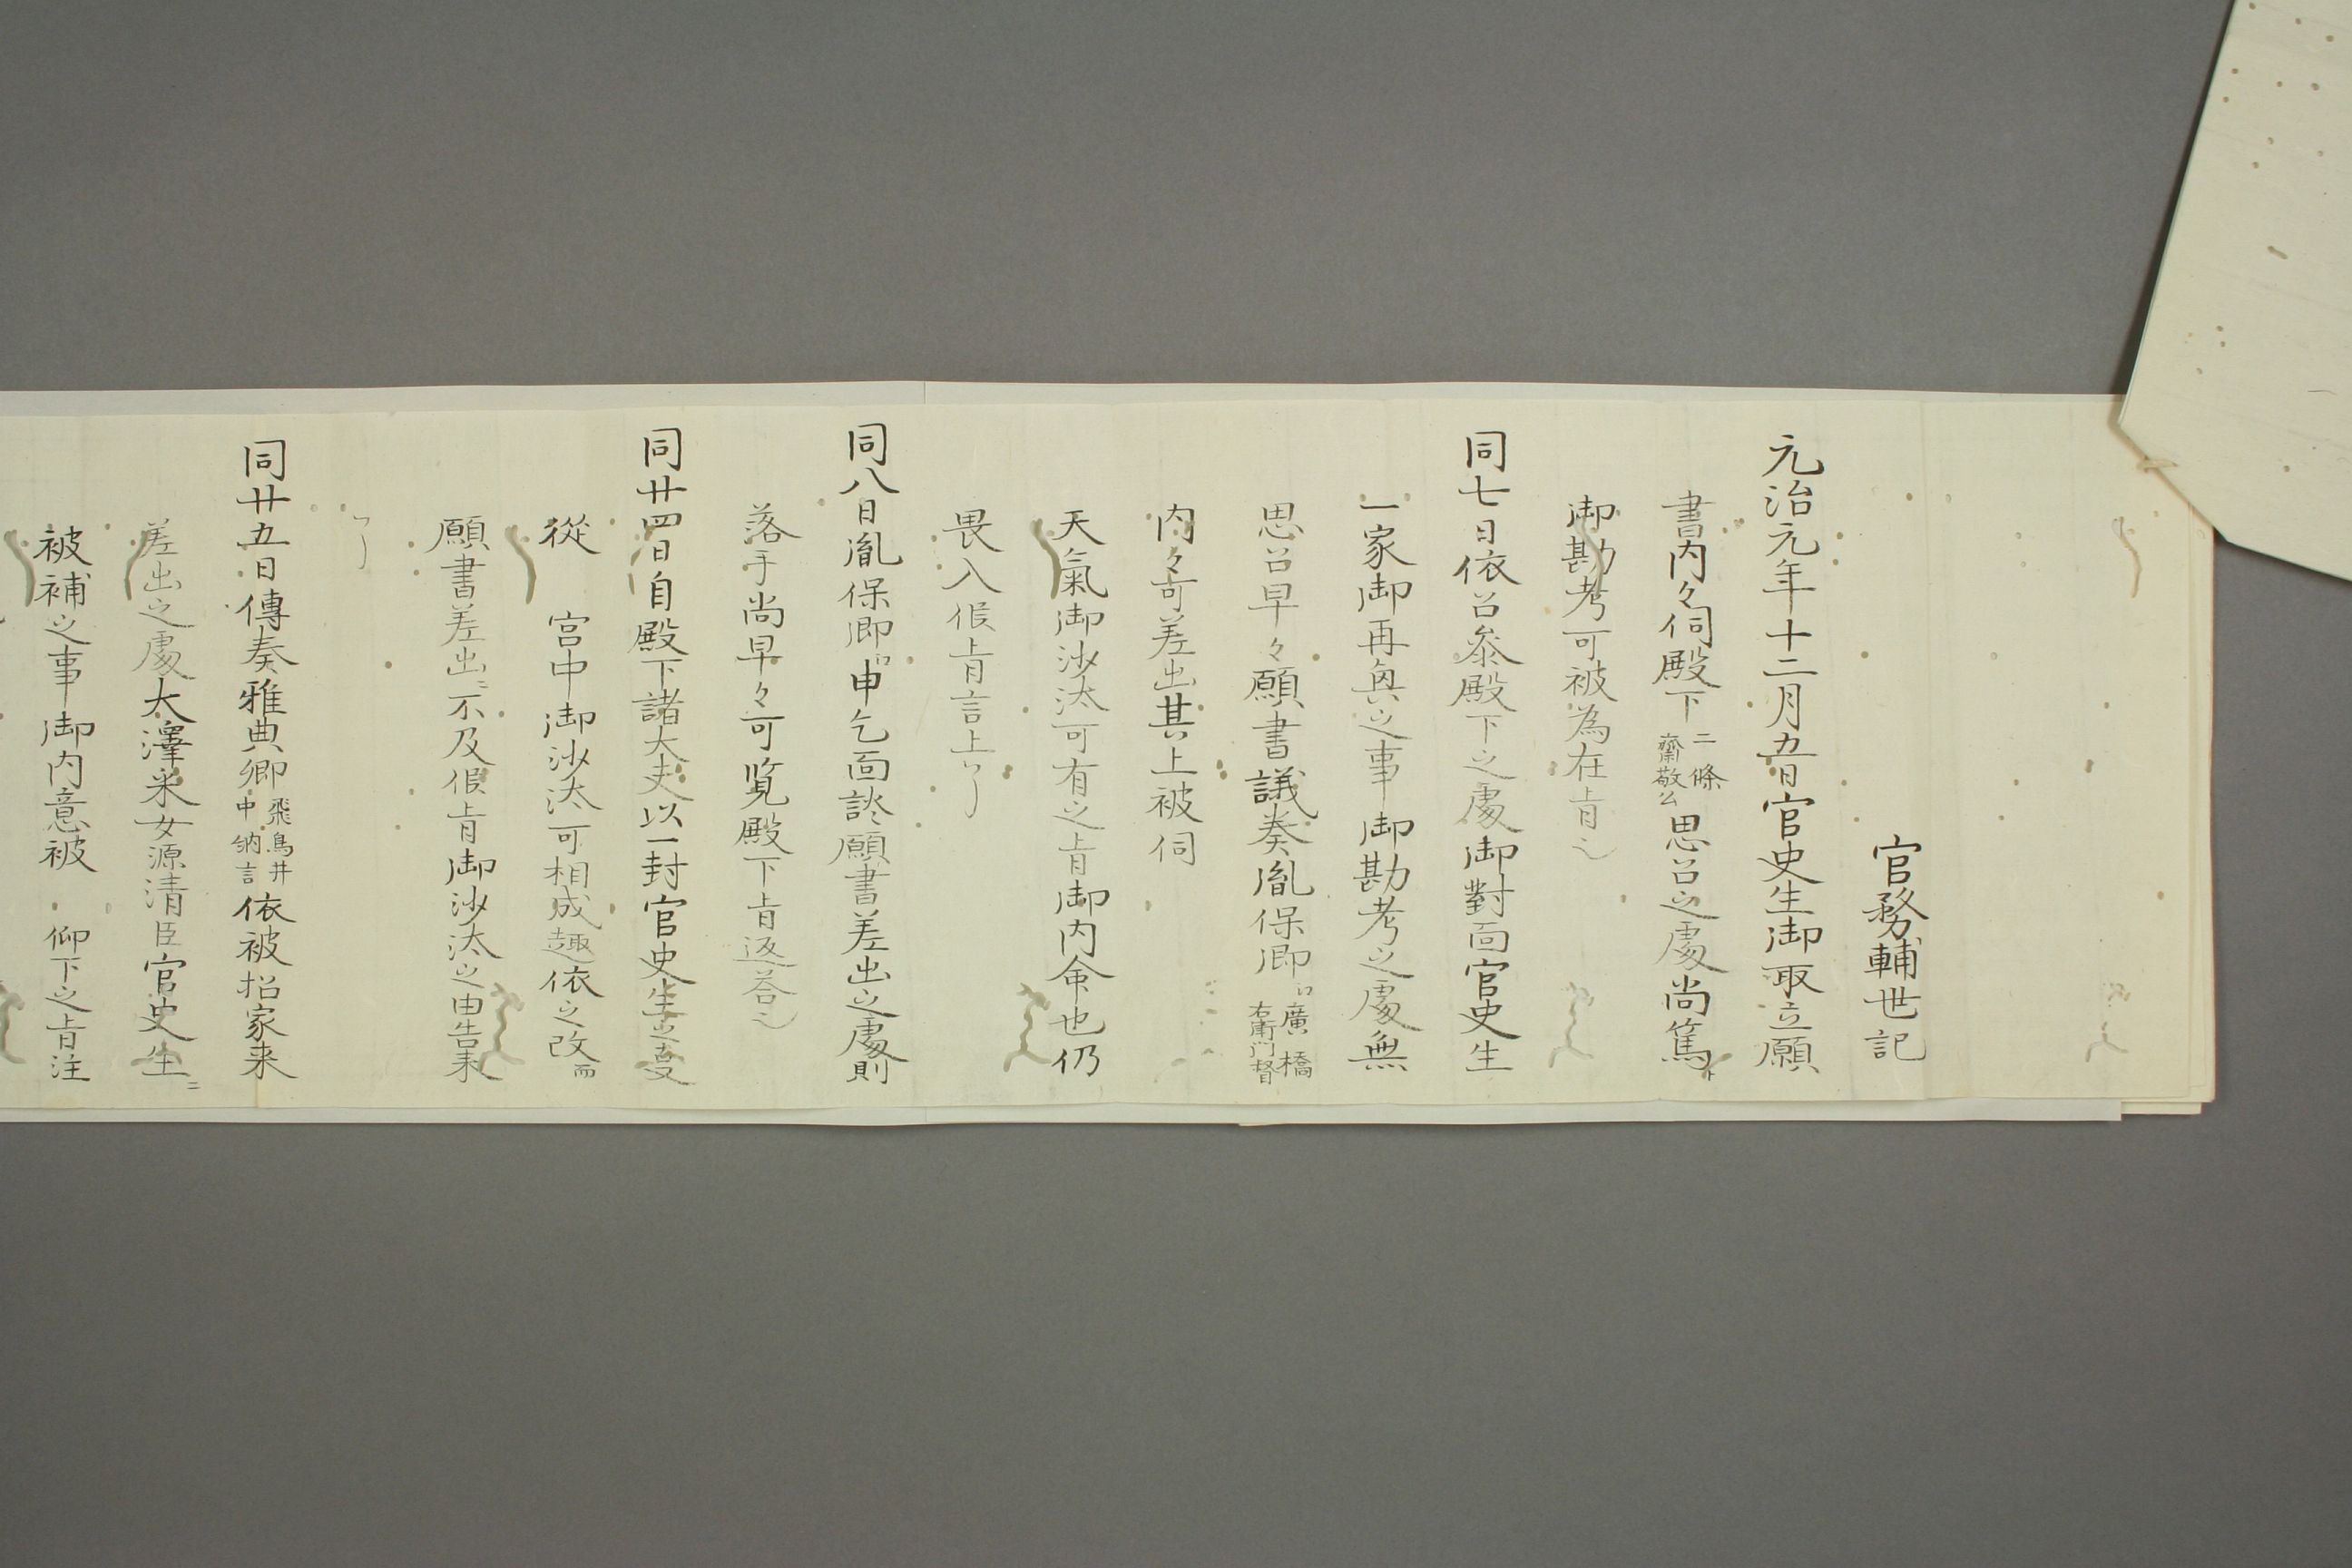 官務輔世記
元治元年十二月五日官史生御取立願
書内々伺殿下二條齋敬公思召之處尚篤ト
御勘考可被為在旨也
同七日依召参殿下之處御對面官史生
一家御再興之事御勘考之處無
思召早々願書議奏胤保卿廣橋右衛門督江
内々可差出其上被伺
天氣御沙汰可有之旨御内命也仍
畏入候旨言上了
同八日胤保卿江申乞面談願書差出之處則
落手尚早々可覧殿下旨返答也
同廿四日自殿下諸大夫以一封官史生之支
從　宮中御沙汰可相成趣依之改而
願書差出ニ不及候旨御沙汰之由告来
了
同廿五日傳奏雅典卿飛鳥井中納言依被招家来
差出之處大澤采女源清臣官史生ニ
被補之事御内意被　仰下之旨注